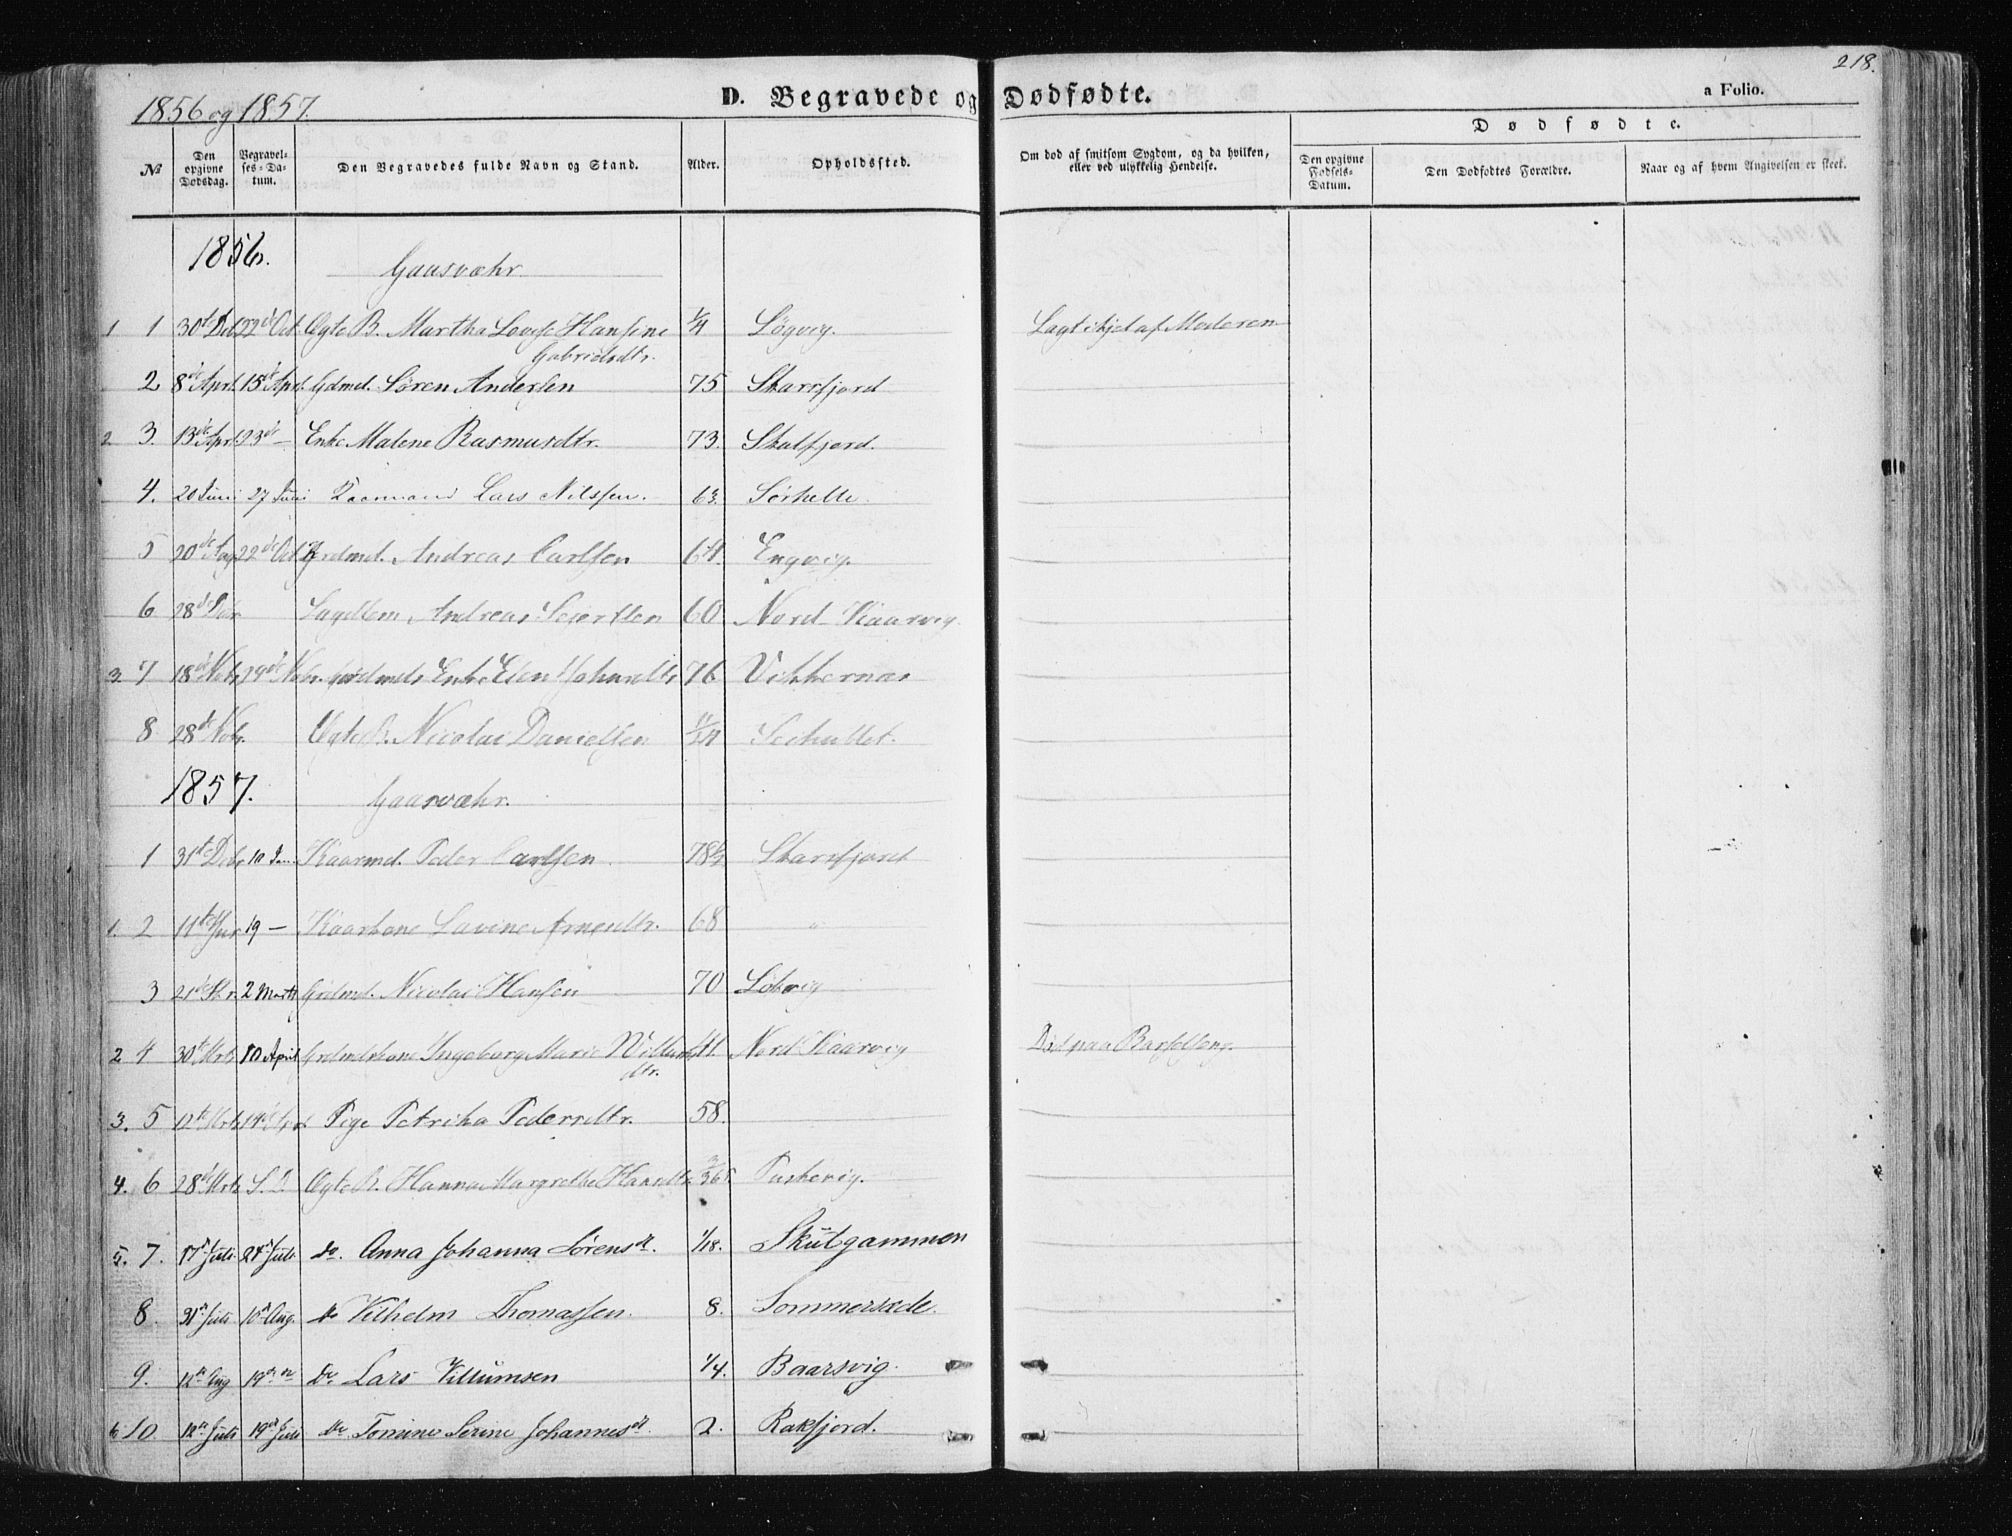 218.
1856 og 1857.
D. Begravede og Dødfødte.
a Folio.
Dødfødte.
No
Den opgivne Dødsdag.
Begravelses-Datum.
Den Begravedes fulde Navn og Stand.
Alder.
Opholdssted.
Om død af smitsom Sygdom, og da hvilken, eller ved ulykkelig Hendelse.
Den opgivne Fødsels-Datum.
Den Dødfødtes Forældre.
Naar og af hvem Angivelsen er skeet.
1856.
Gaasvæhr
1 1 30te 22de Oct. Ægte B. Martha Hansine 1/4 Løgvig. Lagt ihjel af Moderen
Gabrielsdtr.
2 8de Apr. 15de Apr. Gdmd. Søren Andersen 75 Skarsfjord
2 3. 13de Apr. 23de — Enke Malene Rasmusdtr. 73. Skulsfjord.
4. 20 Juni 27 Juni Lars Nilssen. 63.
5 20de Aug 22de Oct Grdmd. Andreas Carlsen 64. Engvig.
6 28de Lægdslem Andreas 60 Nord Kaarvig.
3 7 18de Nobr 29de Nobr. Grdmds Enke Elen 76 Vikkernæs
8 28de Nobr. Ægte B. Nicolai Danielsen 11/24
1857.
Gaasvæhr.
1 31te Debr 10 Jan Kaarmd. Peder Carlsen 78½ Skarsfjord
1. 2 11te 19 — Kaarkone Lavine Arnesdtr. 68 "
3 21de 2 Marts Grdmd. Nicolai Hansen 70
2 4 30te Mrts 10 April Grdmdskone Ingeborg Marie Willums 41. Nord Kaarvig Død paa Barselseng.
dtr.
3. 5 12te Mrts 14de Pige Petrika Pedersdtr. 58.
4. 6 28de Mrts S. D. Ægte B. Hanna Margrethe Hansdtr /365 Tuskevig.
5. 7. 17de Juli 24de Juli do. Anna Johanna Sørensdt. 1/18. Skutgammen
8. 31te Juli 16de Aug. do Vilhelm Thomassen. 8. Sommersæde.
9. 12te Aug 19de Do Lars Villumsen 1/4. Baarsvig.
6 10. 12te Juli 19de Juli do. Tomine Serine Johannesdt. 2. Rakfjord.